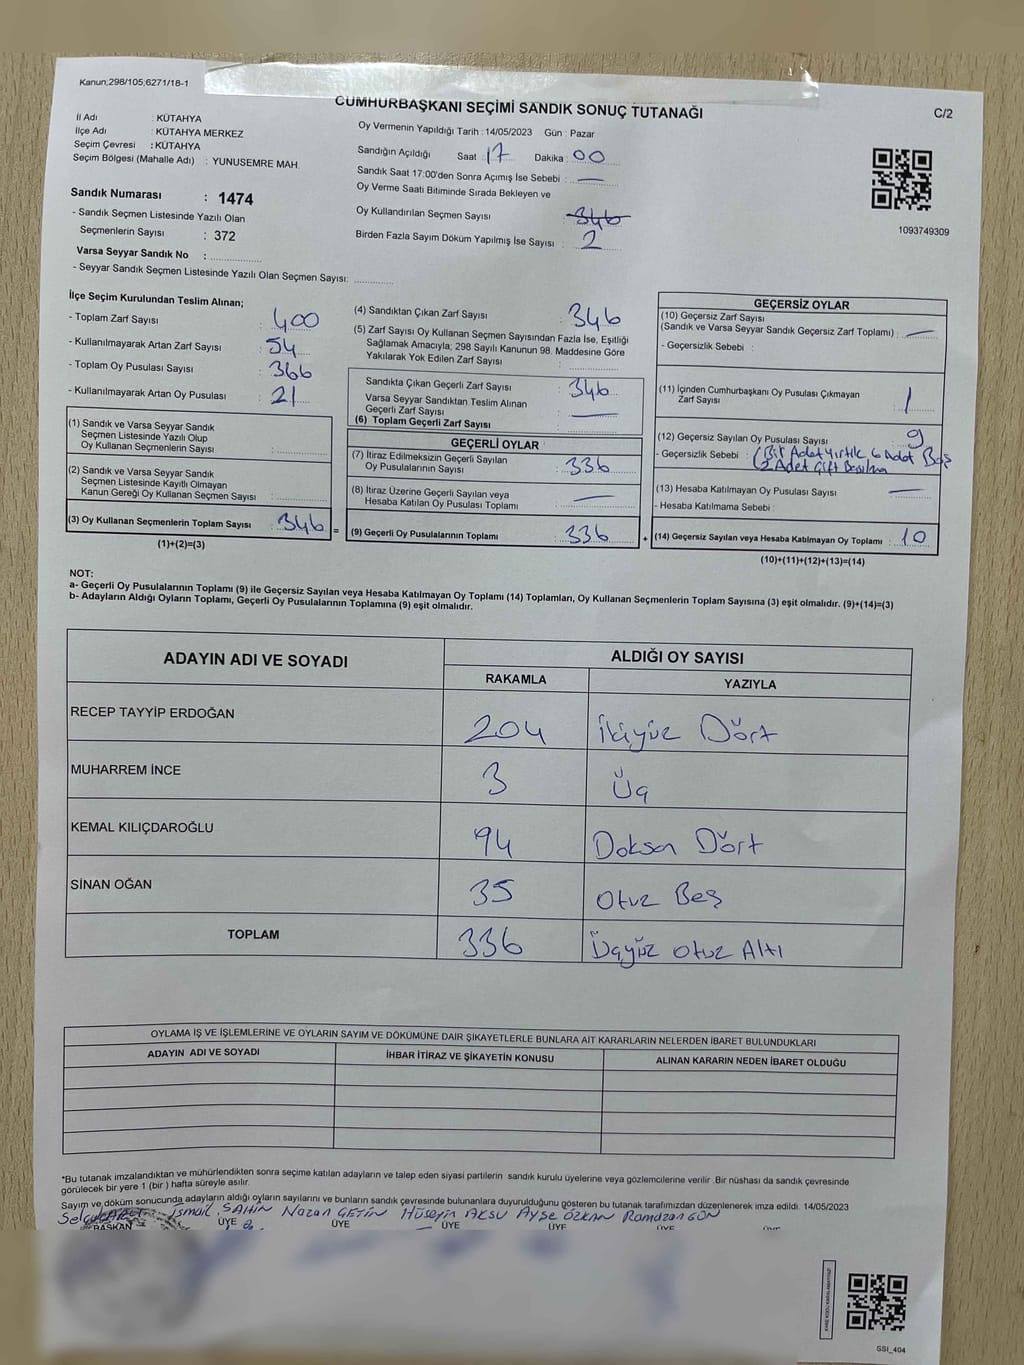 Kanun;298/105;6271/18-1
CUMHURBAŞKANI SEÇİMİ SANDIK SONUÇ TUTANAĞI
C/2
İl Adı : KÜTAHYA
İlçe Adı : KÜTAHYA MERKEZ
Seçim Çevresi : KÜTAHYA
Seçim Bölgesi (Mahalle Adı) : YUNUSEMRE MAH.
Sandık Numarası : 1474
- Sandık Seçmen Listesinde Yazılı Olan
Seçmenlerin Sayısı : 372
Varsa Seyyar Sandık No :
- Seyyar Sandık Seçmen Listesinde Yazılı Olan Seçmen Sayısı:
Oy Vermenin Yapıldığı Tarih : 14/05/2023 Gün : Pazar
Sandığın Açıldığı Saat : 17 Dakika : 00
Sandık Saat 17:00'den Sonra Açımış İse Sebebi : —
Oy Verme Saati Bitiminde Sırada Bekleyen ve
Oy Kullandırılan Seçmen Sayısı : 346
Birden Fazla Sayım Döküm Yapılmış İse Sayısı : 2
1093749309
İlçe Seçim Kurulundan Teslim Alınan;
- Toplam Zarf Sayısı : 400
- Kullanılmayarak Artan Zarf Sayısı : 54
- Toplam Oy Pusulası Sayısı : 366
- Kullanılmayarak Artan Oy Pusulası : 21
(1) Sandık ve Varsa Seyyar Sandık
Seçmen Listesinde Yazılı Olup
Oy Kullanan Seçmenlerin Sayısı :
(2) Sandık ve Varsa Seyyar Sandık
Seçmen Listesinde Kayıtlı Olmayan
Kanun Gereği Oy Kullanan Seçmen Sayısı :
(3) Oy Kullanan Seçmenlerin Toplam Sayısı : 346 =
(1)+(2)=(3)
(4) Sandıktan Çıkan Zarf Sayısı : 346
(5) Zarf Sayısı Oy Kullanan Seçmen Sayısından Fazla İse, Eşitliği
Sağlamak Amacıyla; 298 Sayılı Kanunun 98. Maddesine Göre
Yakılarak Yok Edilen Zarf Sayısı :
Sandıkta Çıkan Geçerli Zarf Sayısı : 346
Varsa Seyyar Sandıktan Teslim Alınan
Geçerli Zarf Sayısı : —
(6) Toplam Geçerli Zarf Sayısı :
GEÇERLİ OYLAR
(7) İtiraz Edilmeksizin Geçerli Sayılan
Oy Pusulalarının Sayısı : 336
(8) İtiraz Üzerine Geçerli Sayılan veya
Hesaba Katılan Oy Pusulası Toplamı : —
(9) Geçerli Oy Pusulalarının Toplamı : 336 +
GEÇERSİZ OYLAR
(10) Geçersiz Zarf Sayısı
(Sandık ve Varsa Seyyar Sandık Geçersiz Zarf Toplamı) : —
- Geçersizlik Sebebi :
(11) İçinden Cumhurbaşkanı Oy Pusulası Çıkmayan
Zarf Sayısı : 1
(12) Geçersiz Sayılan Oy Pusulası Sayısı : 9
- Geçersizlik Sebebi : (Bir Adet Yırtık 6 Adet Boş
2 Adet Çift Basılma
(13) Hesaba Katılmayan Oy Pusulası Sayısı : —
- Hesaba Katılmama Sebebi :
(14) Geçersiz Sayılan veya Hesaba Katılmayan Oy Toplamı : 10
(10)+(11)+(12)+(13)=(14)
NOT:
a- Geçerli Oy Pusulalarının Toplamı (9) ile Geçersiz Sayılan veya Hesaba Katılmayan Oy Toplamı (14) Toplamları, Oy Kullanan Seçmenlerin Toplam Sayısına (3) eşit olmalıdır. (9)+(14)=(3)
b- Adayların Aldığı Oyların Toplamı, Geçerli Oy Pusulalarının Toplamına (9) eşit olmalıdır.
ADAYIN ADI VE SOYADI ALDIĞI OY SAYISI
RAKAMLA YAZIYLA
RECEP TAYYİP ERDOĞAN 204 İkiyüz Dört
MUHARREM İNCE 3 Üç
KEMAL KILIÇDAROĞLU 94 Doksan Dört
SİNAN OĞAN 35 Otuz Beş
TOPLAM 336 Üçyüz Otuz Altı
OYLAMA İŞ VE İŞLEMLERİNE VE OYLARIN SAYIM VE DÖKÜMÜNE DAİR ŞİKAYETLERLE BUNLARA AİT KARARLARIN NELERDEN İBARET BULUNDUKLARI
ADAYIN ADI VE SOYADI İHBAR İTİRAZ VE ŞİKAYETİN KONUSU ALINAN KARARIN NEDEN İBARET OLDUĞU
*Bu tutanak imzalandıktan ve mühürlendikten sonra seçime katılan adayların ve talep eden siyasi partilerin sandık kurulu üyelerine veya gözlemcilerine verilir. Bir nüshası da sandık çevresinde
görülecek bir yere 1 (bir ) hafta süreyle asılır.
Sayım ve döküm sonucunda adayların aldığı oyların sayılarını ve bunların sandık çevresinde bulunanlara duyurulduğunu gösteren bu tutanak tarafımızdan düzenlenerek imza edildi. 14/05/2023
İsmail ŞAHİN Nazan ÇETİN Hüseyin AKSU Ayşe ÖZKAN Ramazan GÖN
BAŞKAN ÜYE ÜYE ÜYE ÜYE ÜYE ÜYE
SSI_404